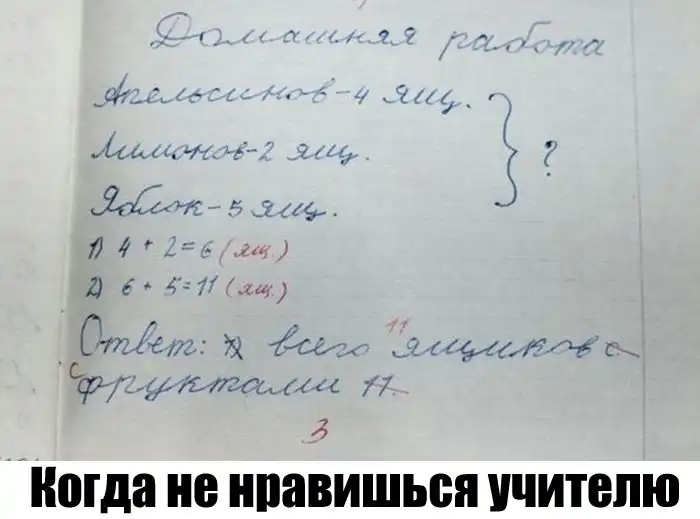 Домашняя работа
Апельсинов-4 ящ.
Лимонов-2 ящ. } ?
Яблок-5 ящ.
1) 4 + 2=6 (ящ.)
2) 6 + 5=11 (ящ.)
Ответ: всего 11 ящиков с
с фруктами 11.
3
Когда не нравишься учителю